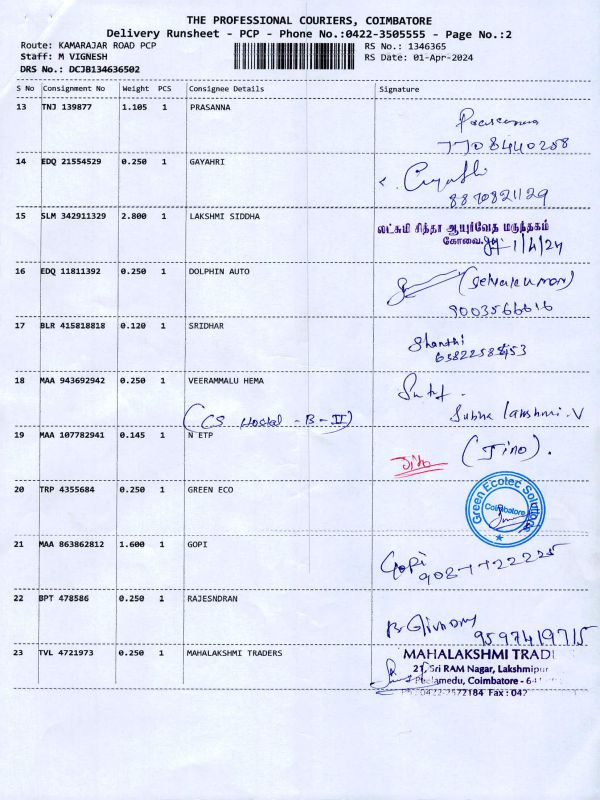 THE PROFESSIONAL COURIERS, COIMBATORE
Delivery Runsheet - PCP - Phone No.:0422-3505555 - Page No.:2
Route: KAMARAJAR ROAD PCP RS No.: 1346365
Staff: M VIGNESH RS Date: 01-Apr-2024
DRS No.: DCJB134636502
S No Consignment No Weight PCS Consignee Details Signature
13 TNJ 139877 1.105 1 PRASANNA
7708440258
14 EDQ 21554529 0.250 1 GAYAHRI
8870821129
15 SLM 342911329 2.800 1 LAKSHMI SIDDHA
லட்சுமி சித்தா ஆயுர்வேத மருந்தகம்
கோவை. 1/4/24
16 EDQ 11811392 0.250 1 DOLPHIN AUTO
(Selvakumar)
9003566616
17 BLR 415818818 0.120 1 SRIDHAR
Shanthi
18 MAA 943692942 0.250 1 VEERAMMALU HEMA
(CS Hostal - B - II) Subha lakshmi. V
19 MAA 107782941 0.145 1 N ETP
Jino (Jino).
20 TRP 4355684 0.250 1 GREEN ECO
Green Ecotec Solutions
Coimbatore
21 MAA 863862812 1.600 1 GOPI
Gopi
9087722225
22 BPT 478586 0.250 1 RAJESNDRAN
9597419715
23 TVL 4721973 0.250 1 MAHALAKSHMI TRADERS
MAHALAKSHMI TRAD
21, Sri RAM Nagar, Lakshmipur
Peelamedu, Coimbatore - 641
Ph : 0422-2572184 Fax : 042